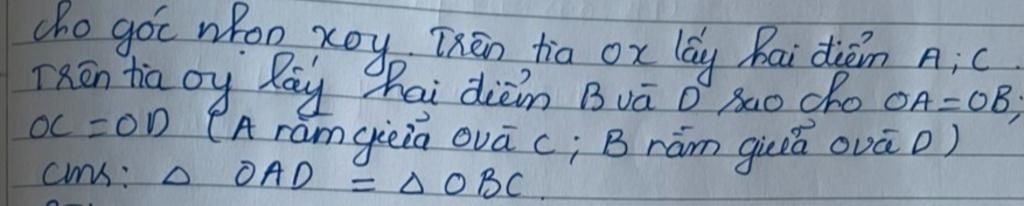 cho góc nhọn xoy. Trên tia ox lấy hai điểm A; C.
Trên tia oy lấy hai điểm B và D sao cho OA = OB;
OC = OD (A nằm giữa O và C; B nằm giữa O và D)
CMR: △ OAD = △ OBC.